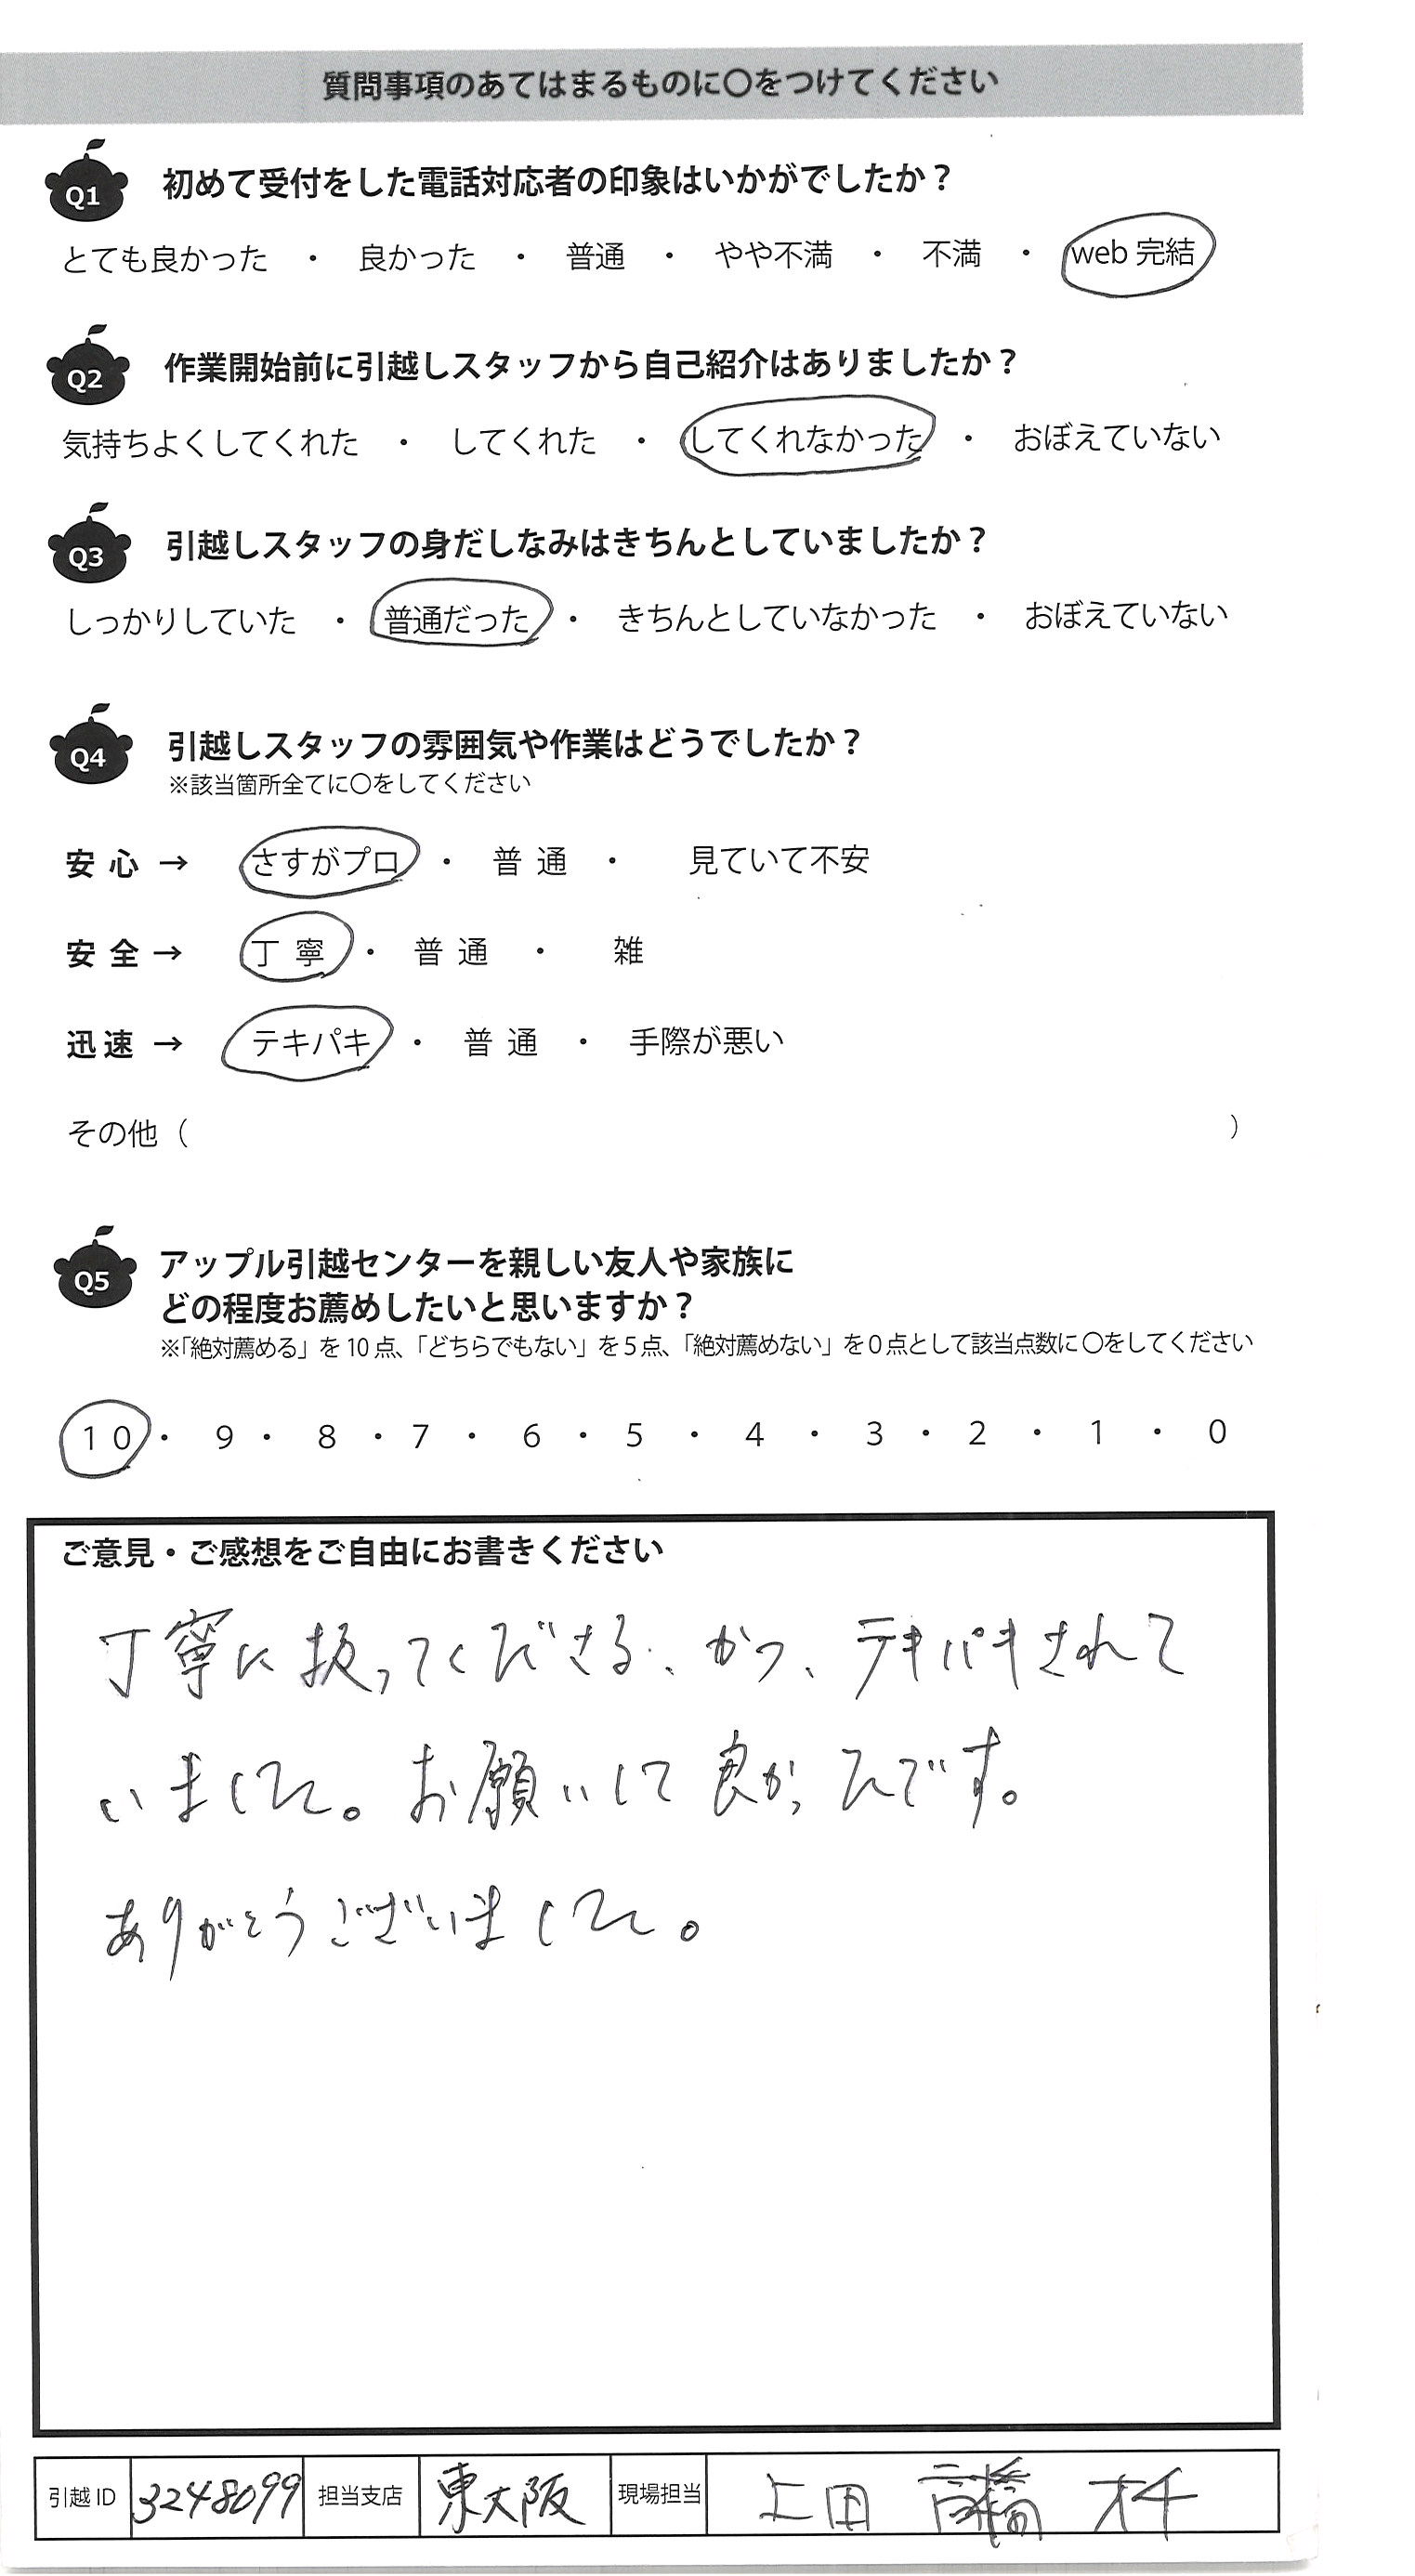 質問事項のあてはまるものに〇をつけてください
Q1 初めて受付をした電話対応者の印象はいかがでしたか？
とても良かった ・ 良かった ・ 普通 ・ やや不満 ・ 不満 ・ web 完結
Q2 作業開始前に引越しスタッフから自己紹介はありましたか？
気持ちよくしてくれた ・ してくれた ・ してくれなかった ・ おぼえていない
Q3 引越しスタッフの身だしなみはきちんとしていましたか？
しっかりしていた ・ 普通だった ・ きちんとしていなかった ・ おぼえていない
Q4 引越しスタッフの雰囲気や作業はどうでしたか？
※該当箇所全てに〇をしてください
安心 → さすがプロ ・ 普通 ・ 見ていて不安
安全 → 丁寧 ・ 普通 ・ 雑
迅速 → テキパキ ・ 普通 ・ 手際が悪い
その他（ ）
Q5 アップル引越センターを親しい友人や家族に
どの程度お薦めしたいと思いますか？
※「絶対薦める」を10点、「どちらでもない」を5点、「絶対薦めない」を0点として該当点数に〇をしてください
10 ・ 9 ・ 8 ・ 7 ・ 6 ・ 5 ・ 4 ・ 3 ・ 2 ・ 1 ・ 0
ご意見・ご感想をご自由にお書きください
丁寧に扱ってくださる、かつ、テキパキされて
いました。お願いして良かったです。
ありがとうございました。
引越ID 3248099 担当支店 東大阪 現場担当 上田 高橋